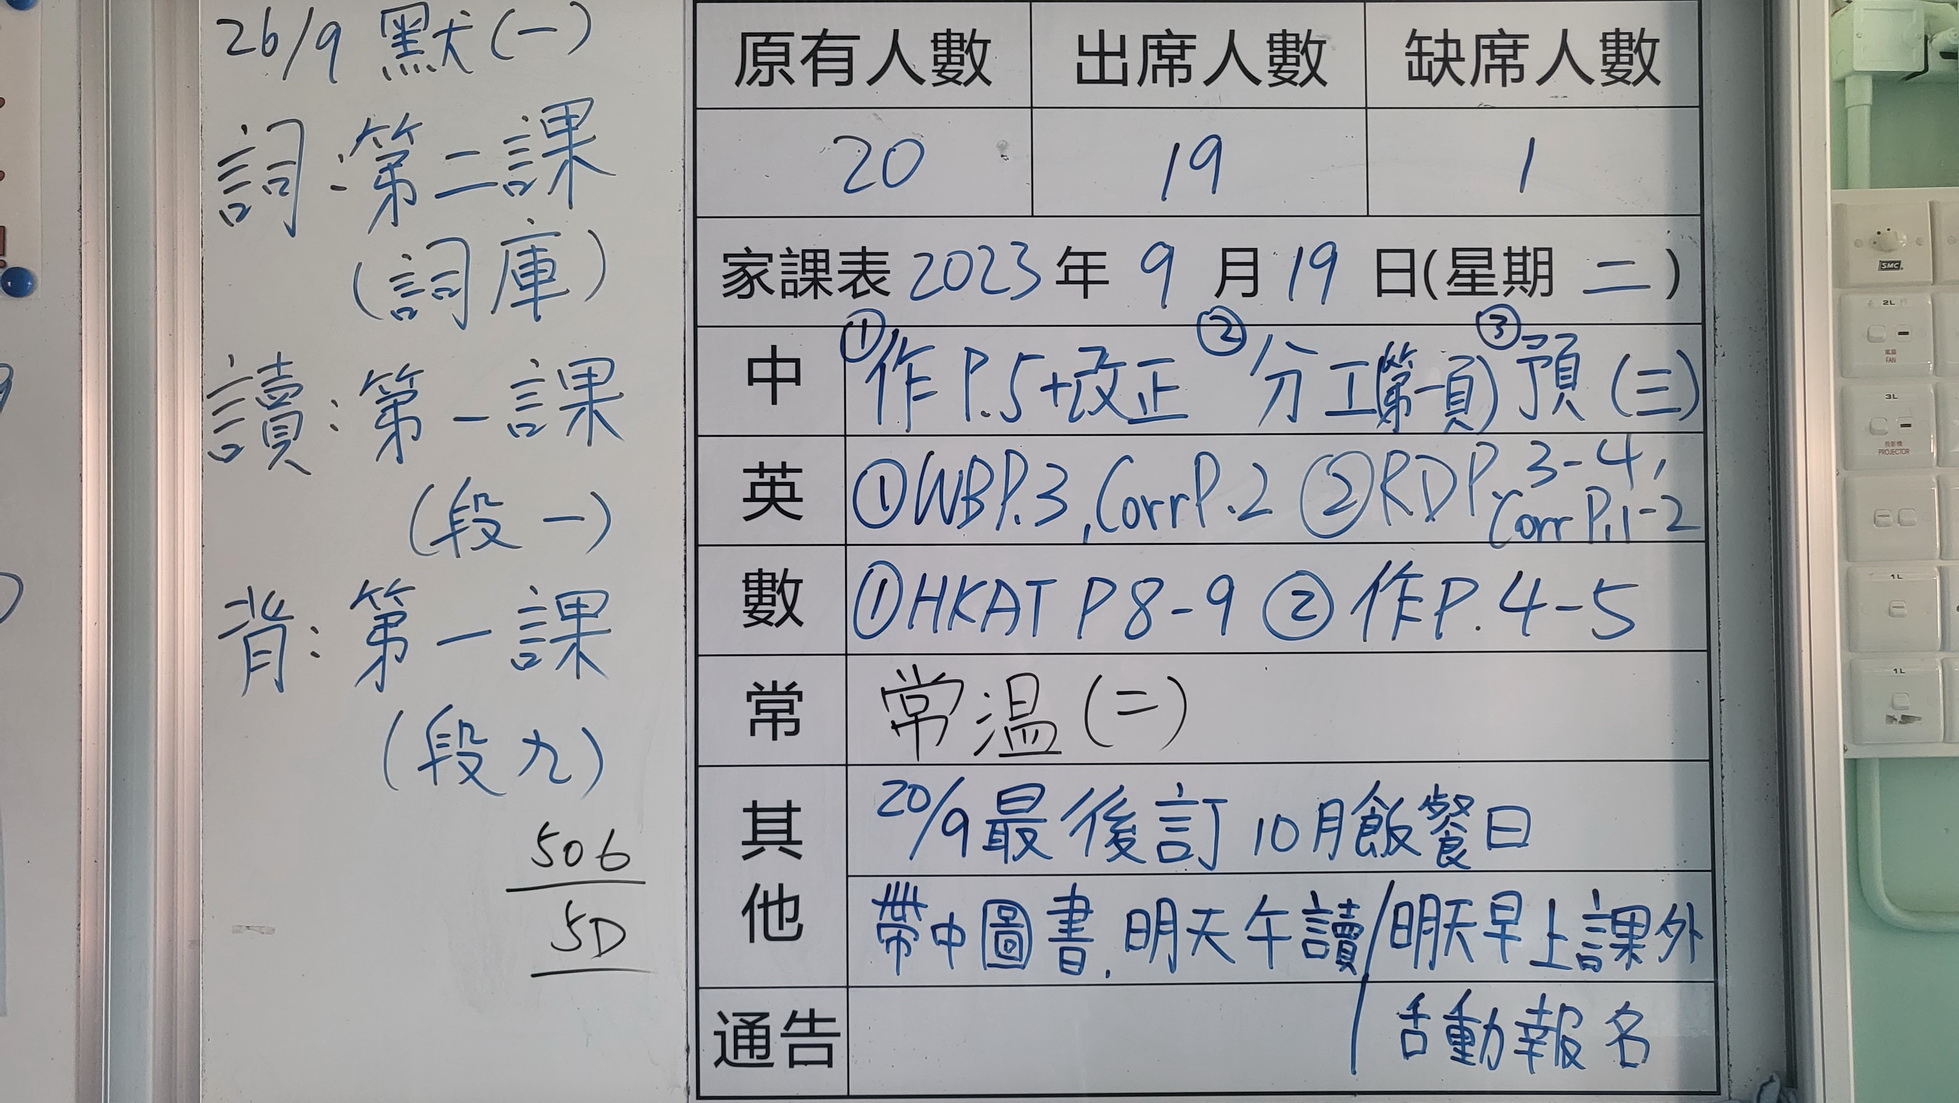 26/9 默(一)
詞:第二課
(詞庫)
讀:第一課
(段一)
背:第一課
(段九)
506
5D
原有人數 出席人數 缺席人數
20 19 1
家課表 2023 年 9 月 19 日(星期 二)
中 ①作P.5+改正 ②分工(第一頁) ③預(三)
英 ①WBP.3, CorrP.2 ②RDP.3-4, Corr P.1-2
數 ①HKAT P8-9 ②作P.4-5
常 常温(二)
其他 20/9最後訂10月飯餐日
帶中圖書,明天午讀/明天早上課外
通告 / 活動報名
SMC
2L
FAN
3L
PROJECTOR
1L
1L